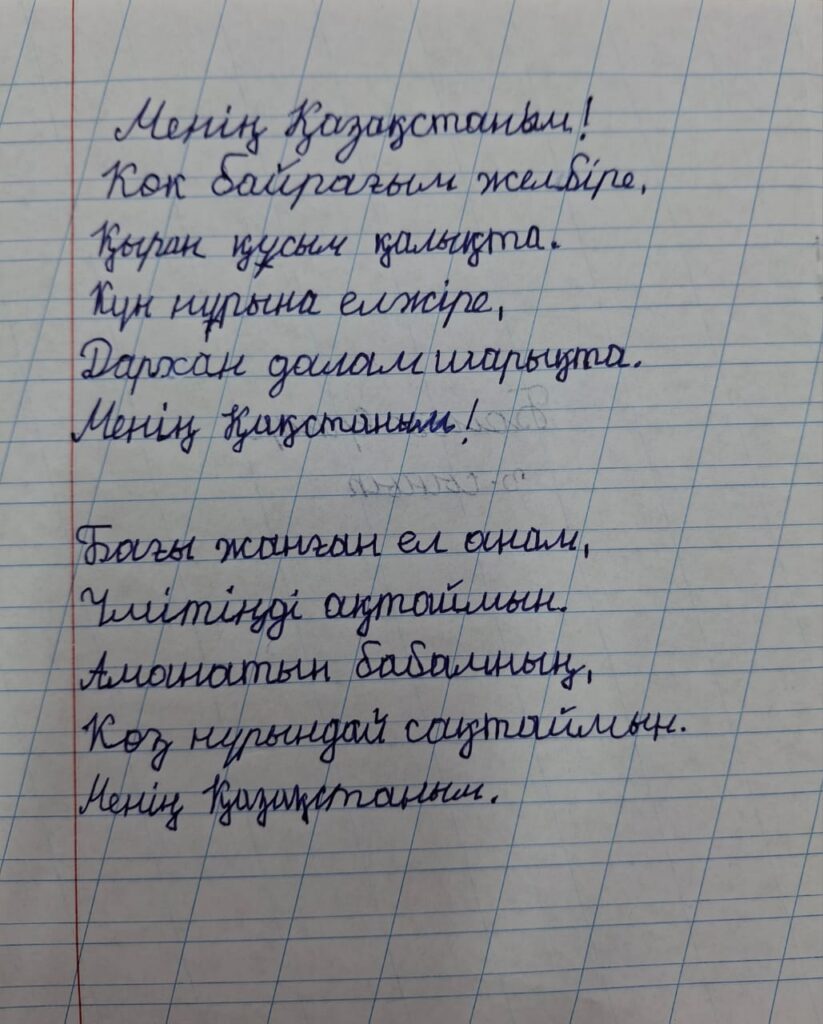 Менің Қазақстаным!
Көк байрағым желбіре,
Қыран құсым қалықта.
Күн нұрына елжіре,
Дархан далам шарықта.
Менің Қақстаным!
Бағы жанған ел анам,
Үмітіңді ақтаймын.
Аманатын бабамның,
Көз нұрындай сақтаймын.
Менің Қазақстаным.